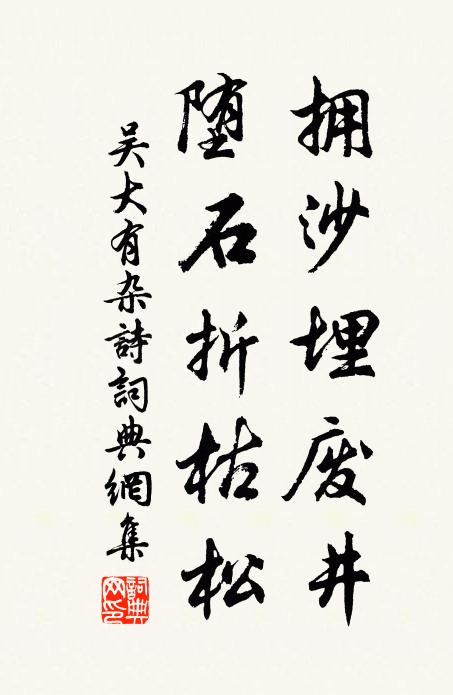 拥沙埋废井
堕石折枯松
吴大有杂詩詞典網集
詞典网印